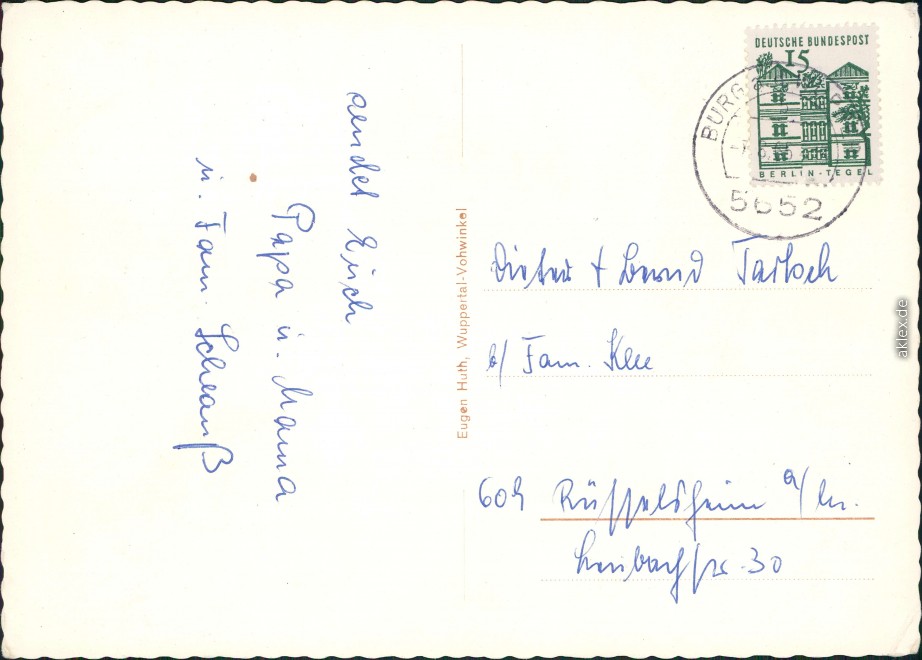 sendet Euch
Papa u. Mama
u. Fam. Schwarß
Eugen Huth, Wuppertal-Vohwinkel
DEUTSCHE BUNDESPOST
15
BERLIN-TEGEL
BURG
5652
Dieter + Bernd
b/ Fam. Klee
609 Rüsselsheim a/M.
30
aklex.de